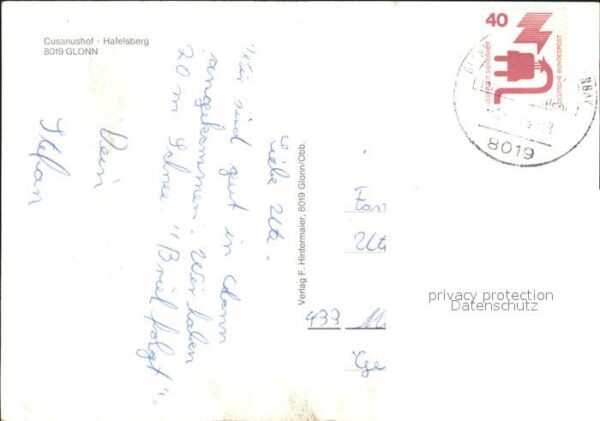 Cusanushof - Hafelsberg
8019 GLONN
Liebe Ute.
Wir sind gut in Glonn
angekommen. Wir haben
20 m Schnee. "Brief folgt".
Dein
Stefan
Verlag F. Hintermaier, 8019 Glonn/Obb.
40
DEUTSCHE BUNDESPOST
8019
Fam
Ute
433 M
privacy protection
Datenschutz